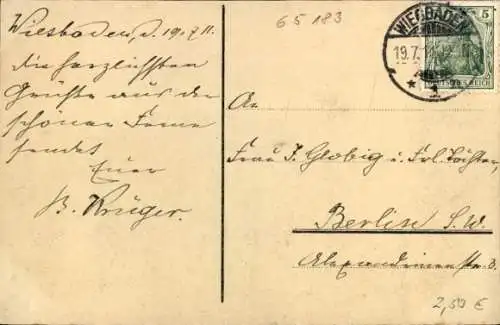 65183
Wiesbaden, d. 19.7.11.
die herzlichsten
Grüße aus der
schönen Ferne
sendet
Euer
B. Krüger.
WIESBADEN
19.7.
* 1
5
DEUTSCHES REICH
An
Frau J. Globig u. Frl. Töchter,
Berlin S.W.
Alexandrinenstr. 3.
2,50 €